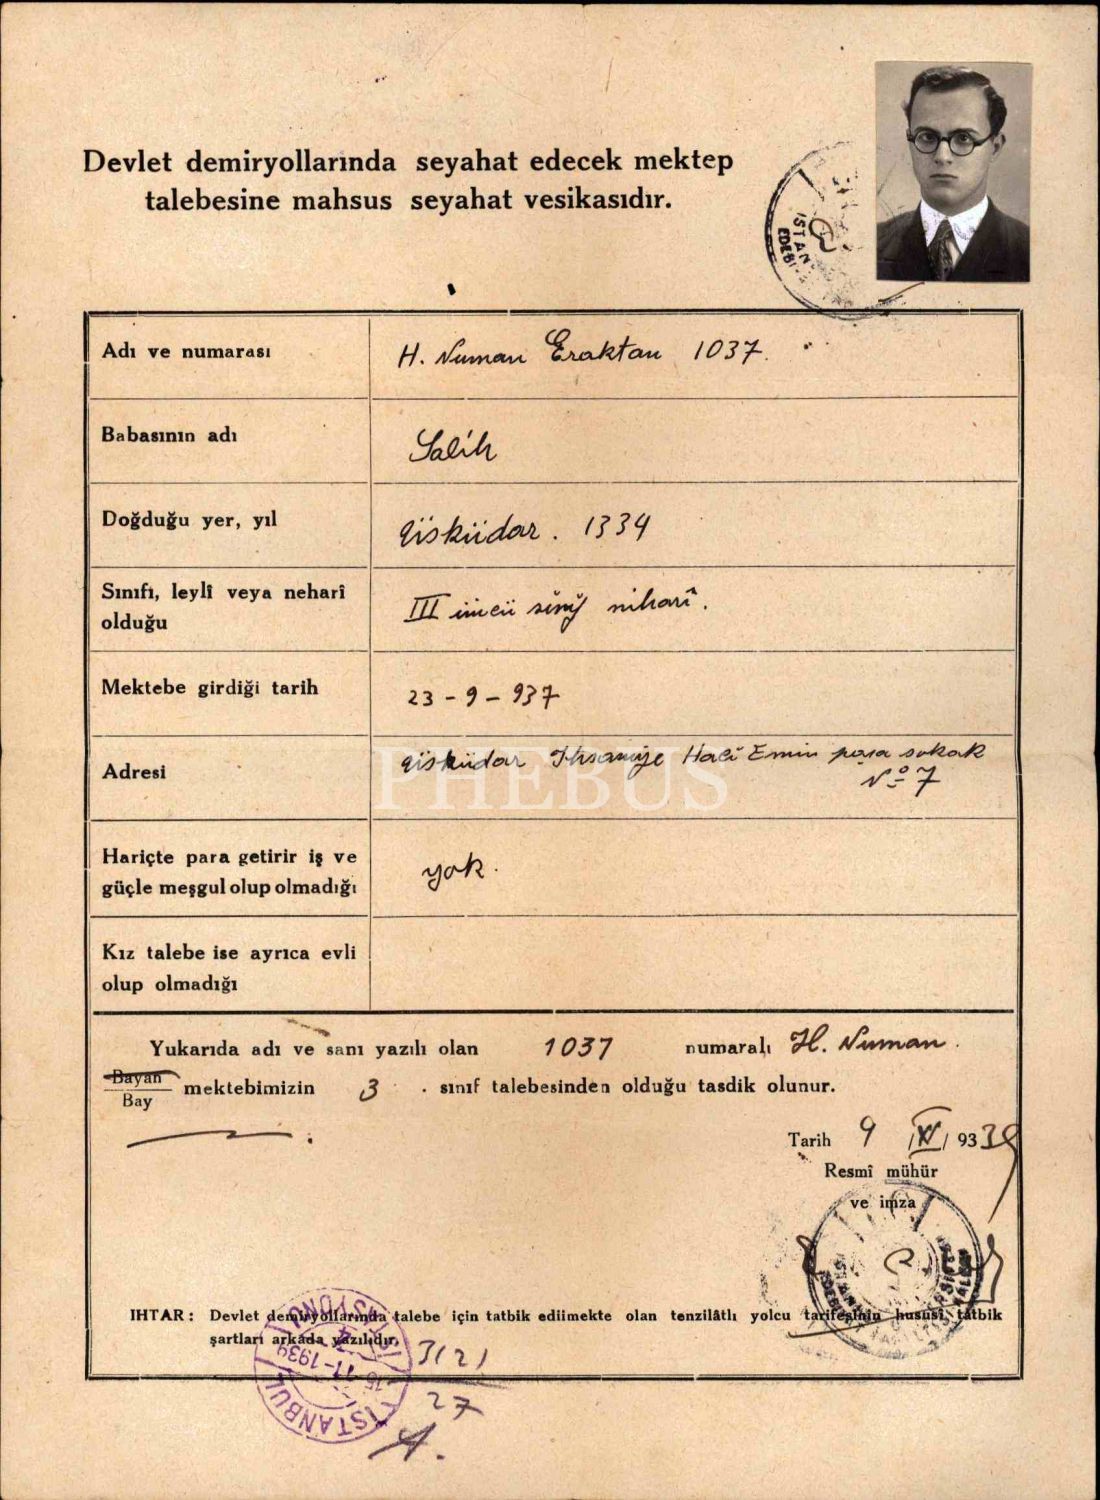 Devlet demiryollarında seyahat edecek mektep
talebesine mahsus seyahat vesikasıdır.
Adı ve numarası
H. Numan Eraktan 1037.
Babasının adı
Salih
Doğduğu yer, yıl
Üsküdar. 1334
Sınıfı, leylî veya neharî
olduğu
III üncü sınıf niharî.
Mektebe girdiği tarih
23-9-937
Adresi
Üsküdar Ihsaniye Hacı Emin paşa sokak
No 7
PHEBUS
Hariçte para getirir iş ve
güçle meşgul olup olmadığı
yok.
Kız talebe ise ayrıca evli
olup olmadığı
Yukarıda adı ve sanı yazılı olan 1037 numaralı H. Numan.
Bayan
Bay
mektebimizin 3. sınıf talebesinden olduğu tasdik olunur.
Tarih 9 /XI/ 939
Resmî mühür
ve imza
IHTAR: Devlet demiryollarında talebe için tatbik ediimekte olan tenzilâtlı yolcu tarifesinin hususî tatbik
şartları arkada yazılıdır.
3121
27
ISTANBUL
11-1939